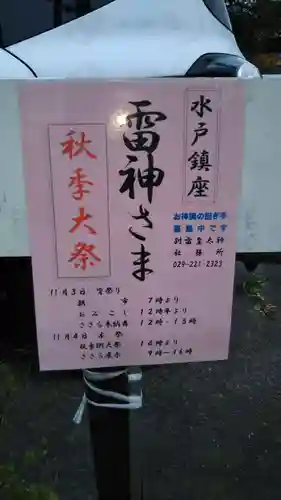 水戸鎮座
雷神さま
秋季大祭
お神輿の担ぎ手
募集中です
別雷皇太神
社務所
029-221-2323
11月3日 宵祭り
朝市 7時より
おみこし 12時半より
ささら奉納舞 12時・15時
11月4日 本祭
秋季例大祭 14時より
ささら展示 9時〜16時